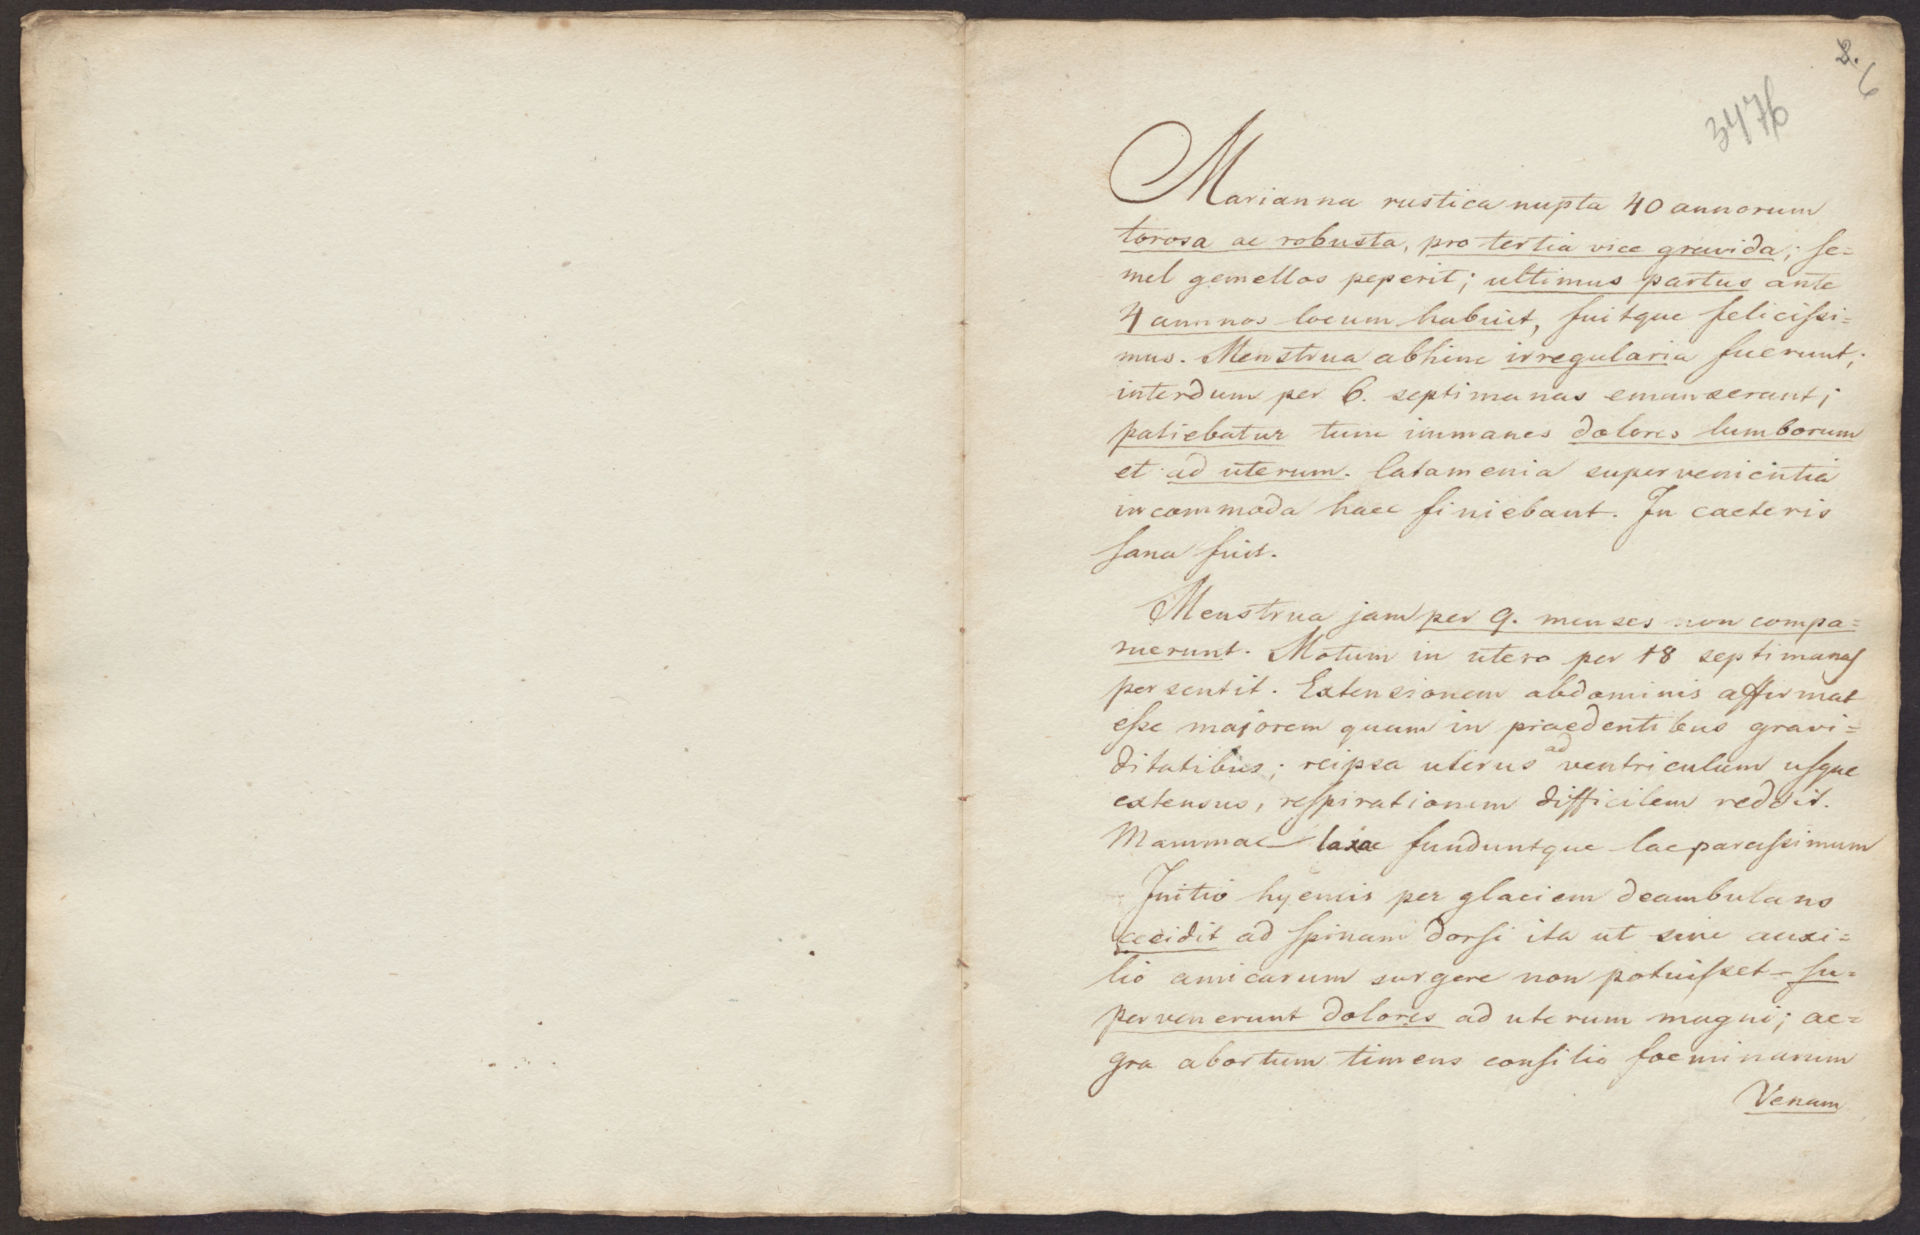 2.
6
3476
Marianna rustica nupta 40 annorum
torosa ac robusta, pro tertia vice gravida; se=
mel gemellos peperit; ultimus partus ante
4 annnos locum habuit, fuitque felicissi=
mus. Menstrua abhinc irregularia fuerunt;
interdum per 6. septimanas emanserant;
patiebatur tunc immanes dolores lumborum
et ad uterum. Catamenia supervenientia
incommoda haec finiebant. In caeteris
sana fuit.
Menstrua jam per 9. menses non compa=
ruerunt. Motum in utero per 18 septimanas
persentit. Extensionem abdominis affirmat
esse majorem quam in praedentibus gravi=
ditatibus; reipsa uterus ad ventriculum usque
extensus, respirationem difficilem reddit.
Mammae laxae funduntque lac parcissimum
Initio hyemis per glaciem deambulans
cecidit ad spinam dorsi ita ut sine auxi=
lio amicarum surgere non potuisset – su=
pervenerunt dolores ad uterum magni; ae=
gra abortum timens consilio foeminarum
Venam